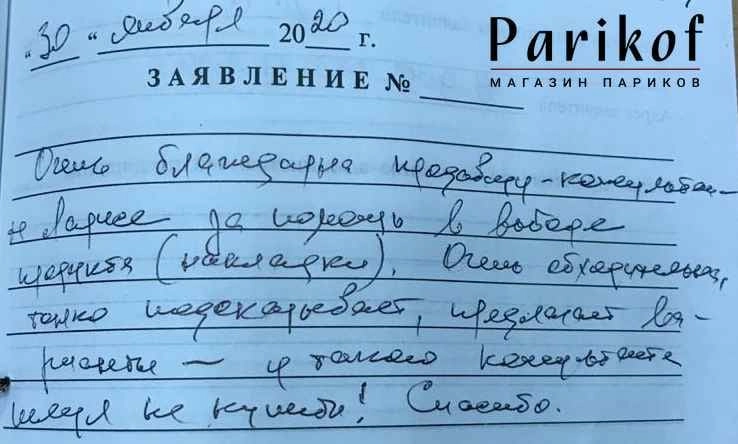 Parikof
МАГАЗИН ПАРИКОВ
"30" января 2020 г.
ЗАЯВЛЕНИЕ №
Очень благодарна продавцу-консультан-
Ларисе за помощь в выборе
продукта (накладки). Очень обходительна,
тонко подсказывает, предлагает ва-
рианты — у такого консультанта
нельзя не купить! Спасибо.